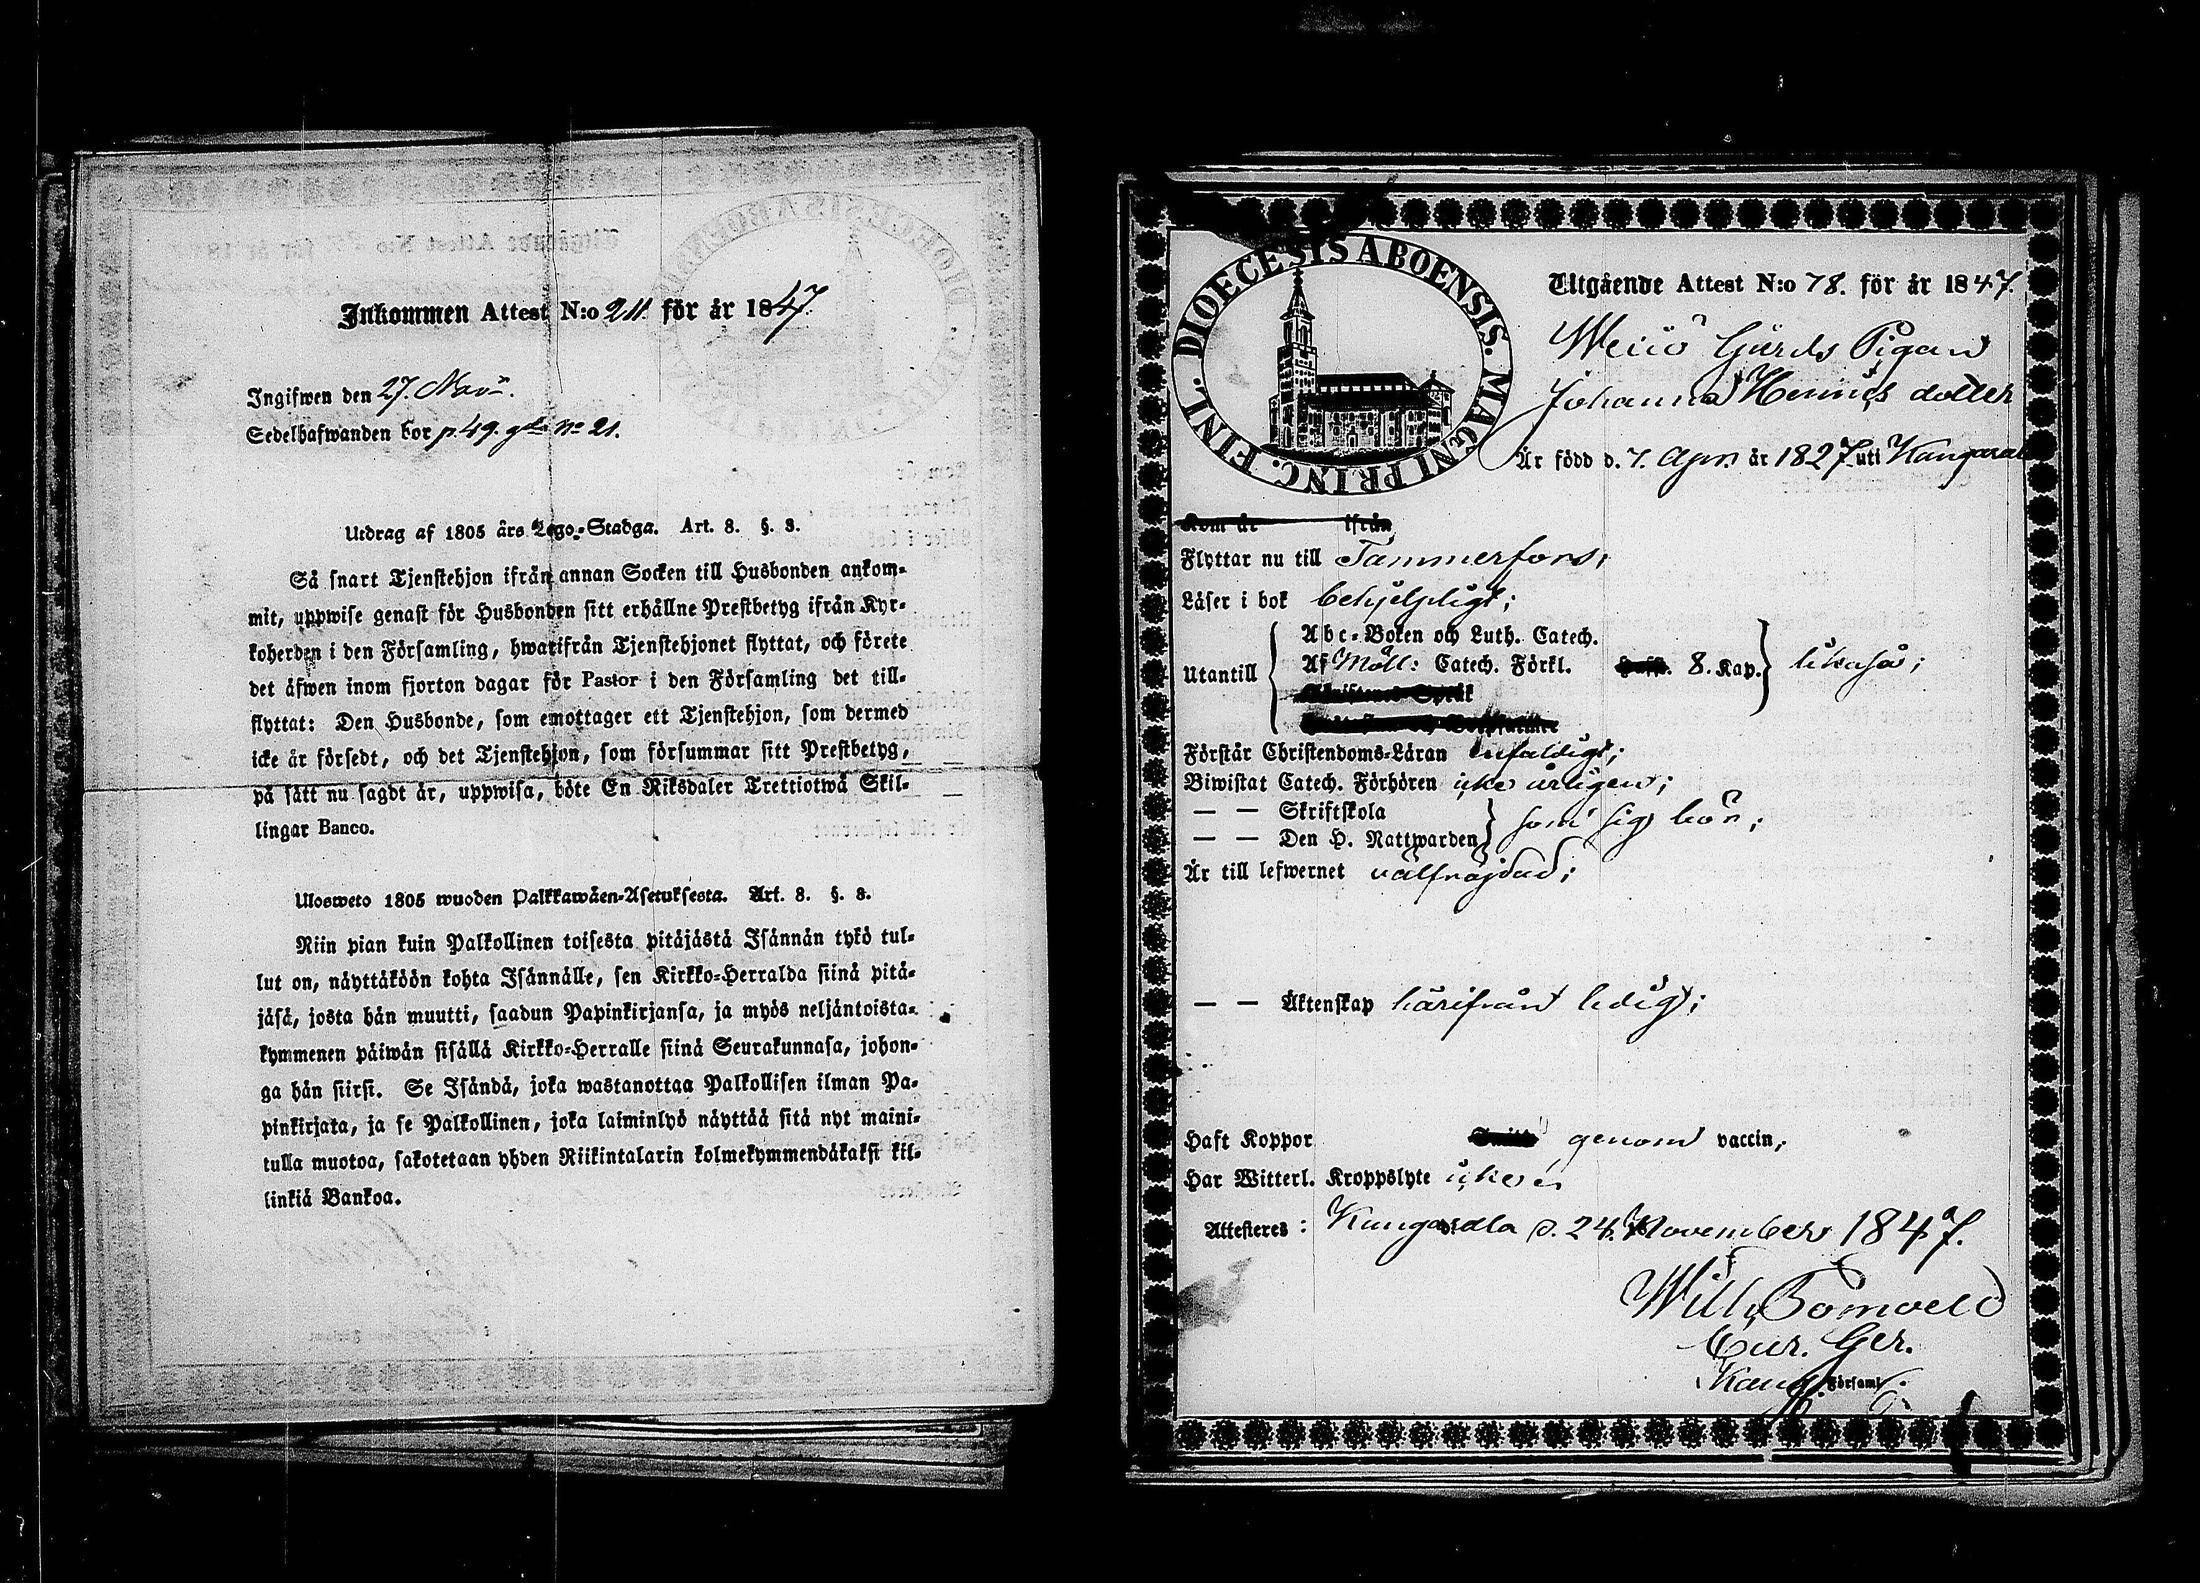 Inkommen Attest N:o 211. för år 1847.
Ingifwen den 27. Nov.
Sedelhafwanden bor p. 49. gdn No 21.
Utdrag af 1805 års Lego-Stadga. Art. 8. §. 3.
Så snart Tjenstehjon ifrån annan Socken till Husbonden ankom-
mit, uppwise genast för Husbonden sitt erhållne Prestbetyg ifrån Kyr-
koherden i den Församling, hwarifrån Tjenstehjonet flyttat, och förete
det äfwen inom fjorton dagar för Pastor i den Församling det till-
flyttat: Den Husbonde, som emottager ett Tjenstehjon, som dermed
icke är försedt, och det Tjenstehjon, som försummar sitt Prestbetyg,
på sätt nu sagdt är, uppwisa, böte En Riksdaler Trettiotwå Skil-
lingar Banco.
Ulosweto 1805 wuoden Palkkawäen-Asetuksesta. Art. 8. §. 3.
Niin pian kuin Palkollinen toisesta pitäjästä Isännän tykö tul-
lut on, näyttäköön kohta Isännälle, sen Kirkko-Herralda siinä pitä-
jäsä, josta hän muutti, saadun Papinkirjansa, ja myös neljäntoista-
kymmenen päiwän sisällä Kirkko-Herralle siinä Seurakunnasa, johon-
ga hän siirsi. Se Isändä, joka wastanottaa Palkollisen ilman Pa-
pinkirjata, ja se Palkollinen, joka laiminlyö näyttää sitä nyt maini-
tulla muotoa, sakotetaan yhden Riikintalarin kolmekymmendäkaksi kil-
linkiä Bankoa.
DIOECESIS ABOENSIS. MAGNI PRINC. FINL.
Utgående Attest N:o 78. för år 1847.
Gårds Pigan
Johanna Henrics dotter
Är född d. 7. Apr. år 1827 uti Kangasala
Kom år ifrån
Flyttar nu till Tammerfors;
Läser i bok behjelpligt;
Utantill
Abc-Boken och Luth. Catech.
Af Möll: Catech. Förkl. 8. Kap. likaså;
Christens Språk
Förstår Christendoms-Läran enfaldigt;
Biwistat Catech. Förhören icke årligen;
— — Skriftskola
— — Den H. Nattwarden som sig bör;
Är till lefwernet välfrejdad;
— — Äktenskap härifrån ledig;
Haft Koppor genom vaccin,
Har Witterl. Kroppslyte icke
Attesteres: Kangasala d. 24. November 1847.
Cur. Ger.
Kang. Församl.